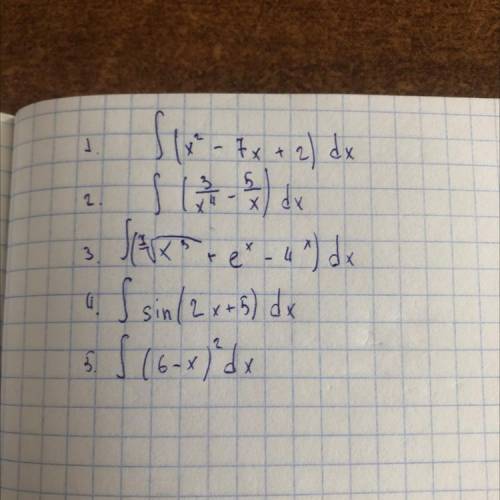 1. ∫ (x² - 7x + 2) dx
2. ∫ (3/x⁴ - 5/x) dx
3. ∫ (⁷√x³ + eˣ - 4ˣ) dx
4. ∫ sin(2x+5) dx
5. ∫ (6-x)² dx